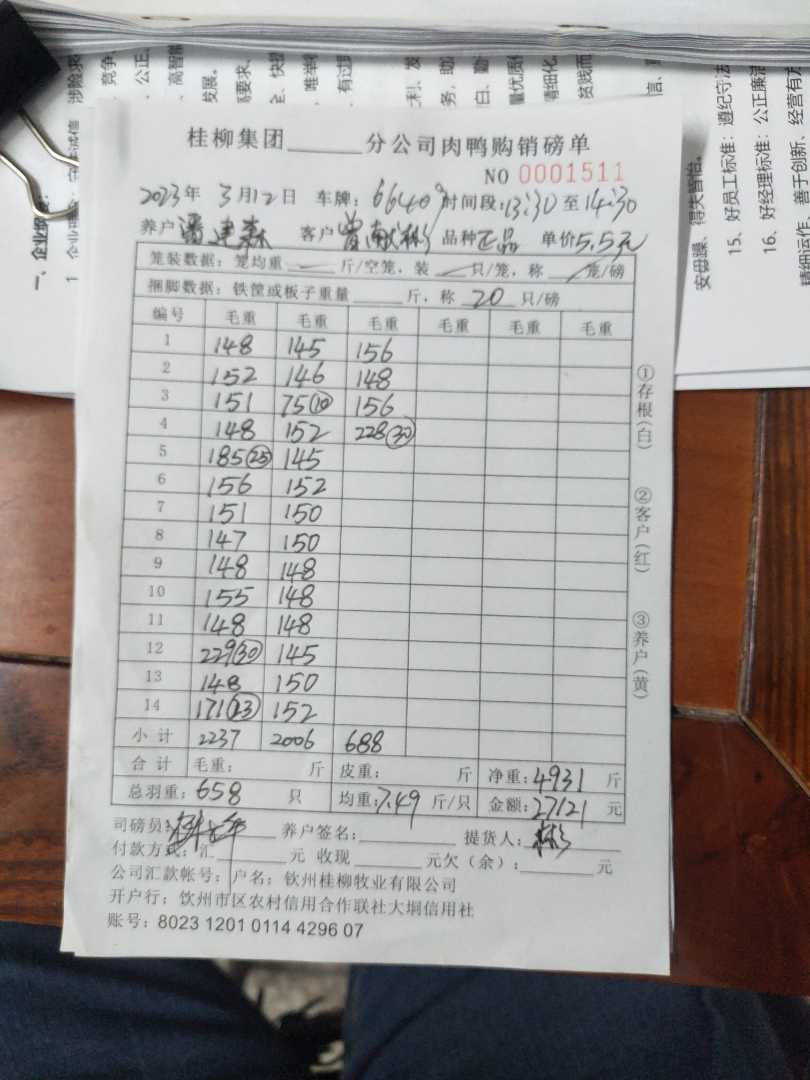 竞争、
公正、
高智能
发展。
唯举
有过
务，助
量优质
精细化
贫贱而
信、
一、企业
安毋躁、得失皆怡。
15、好员工标准：遵纪守法
16、好经理标准：公正廉洁
精细运作、善于创新、经营有方
桂柳集团______分公司肉鸭购销磅单
NO 0001511
2023年 3月12日 车牌：66409 时间段：13:30至14:30
养户 潘建森 客户 曾献彬 品种 正品 单价5.5元
笼装数据：笼均重 斤/空笼，装 只/笼，称 笼/磅
捆脚数据：铁筐或板子重量______斤，称 20 只/磅
编号 毛重 毛重 毛重 毛重 毛重 毛重
1 148 145 156
2 152 146 148
3 151 75(10) 156
4 148 152 228(30)
5 185(25) 145
6 156 152
7 151 150
8 147 150
9 148 148
10 155 148
11 148 148
12 229(30) 145
13 148 150
14 171(23) 152
小计 2237 2006 688
合计 毛重： 斤 皮重： 斤 净重：4931 斤
总羽重：658 只 均重：7.49 斤/只 金额：27121 元
司磅员： 养户签名：______ 提货人：彬
付款方式：汇______元 收现______元欠（余）：______元
公司汇款帐号：户名：钦州桂柳牧业有限公司
开户行：钦州市区农村信用合作联社大垌信用社
账号：8023 1201 0114 4296 07
①存根（白） ②客户（红） ③养户（黄）